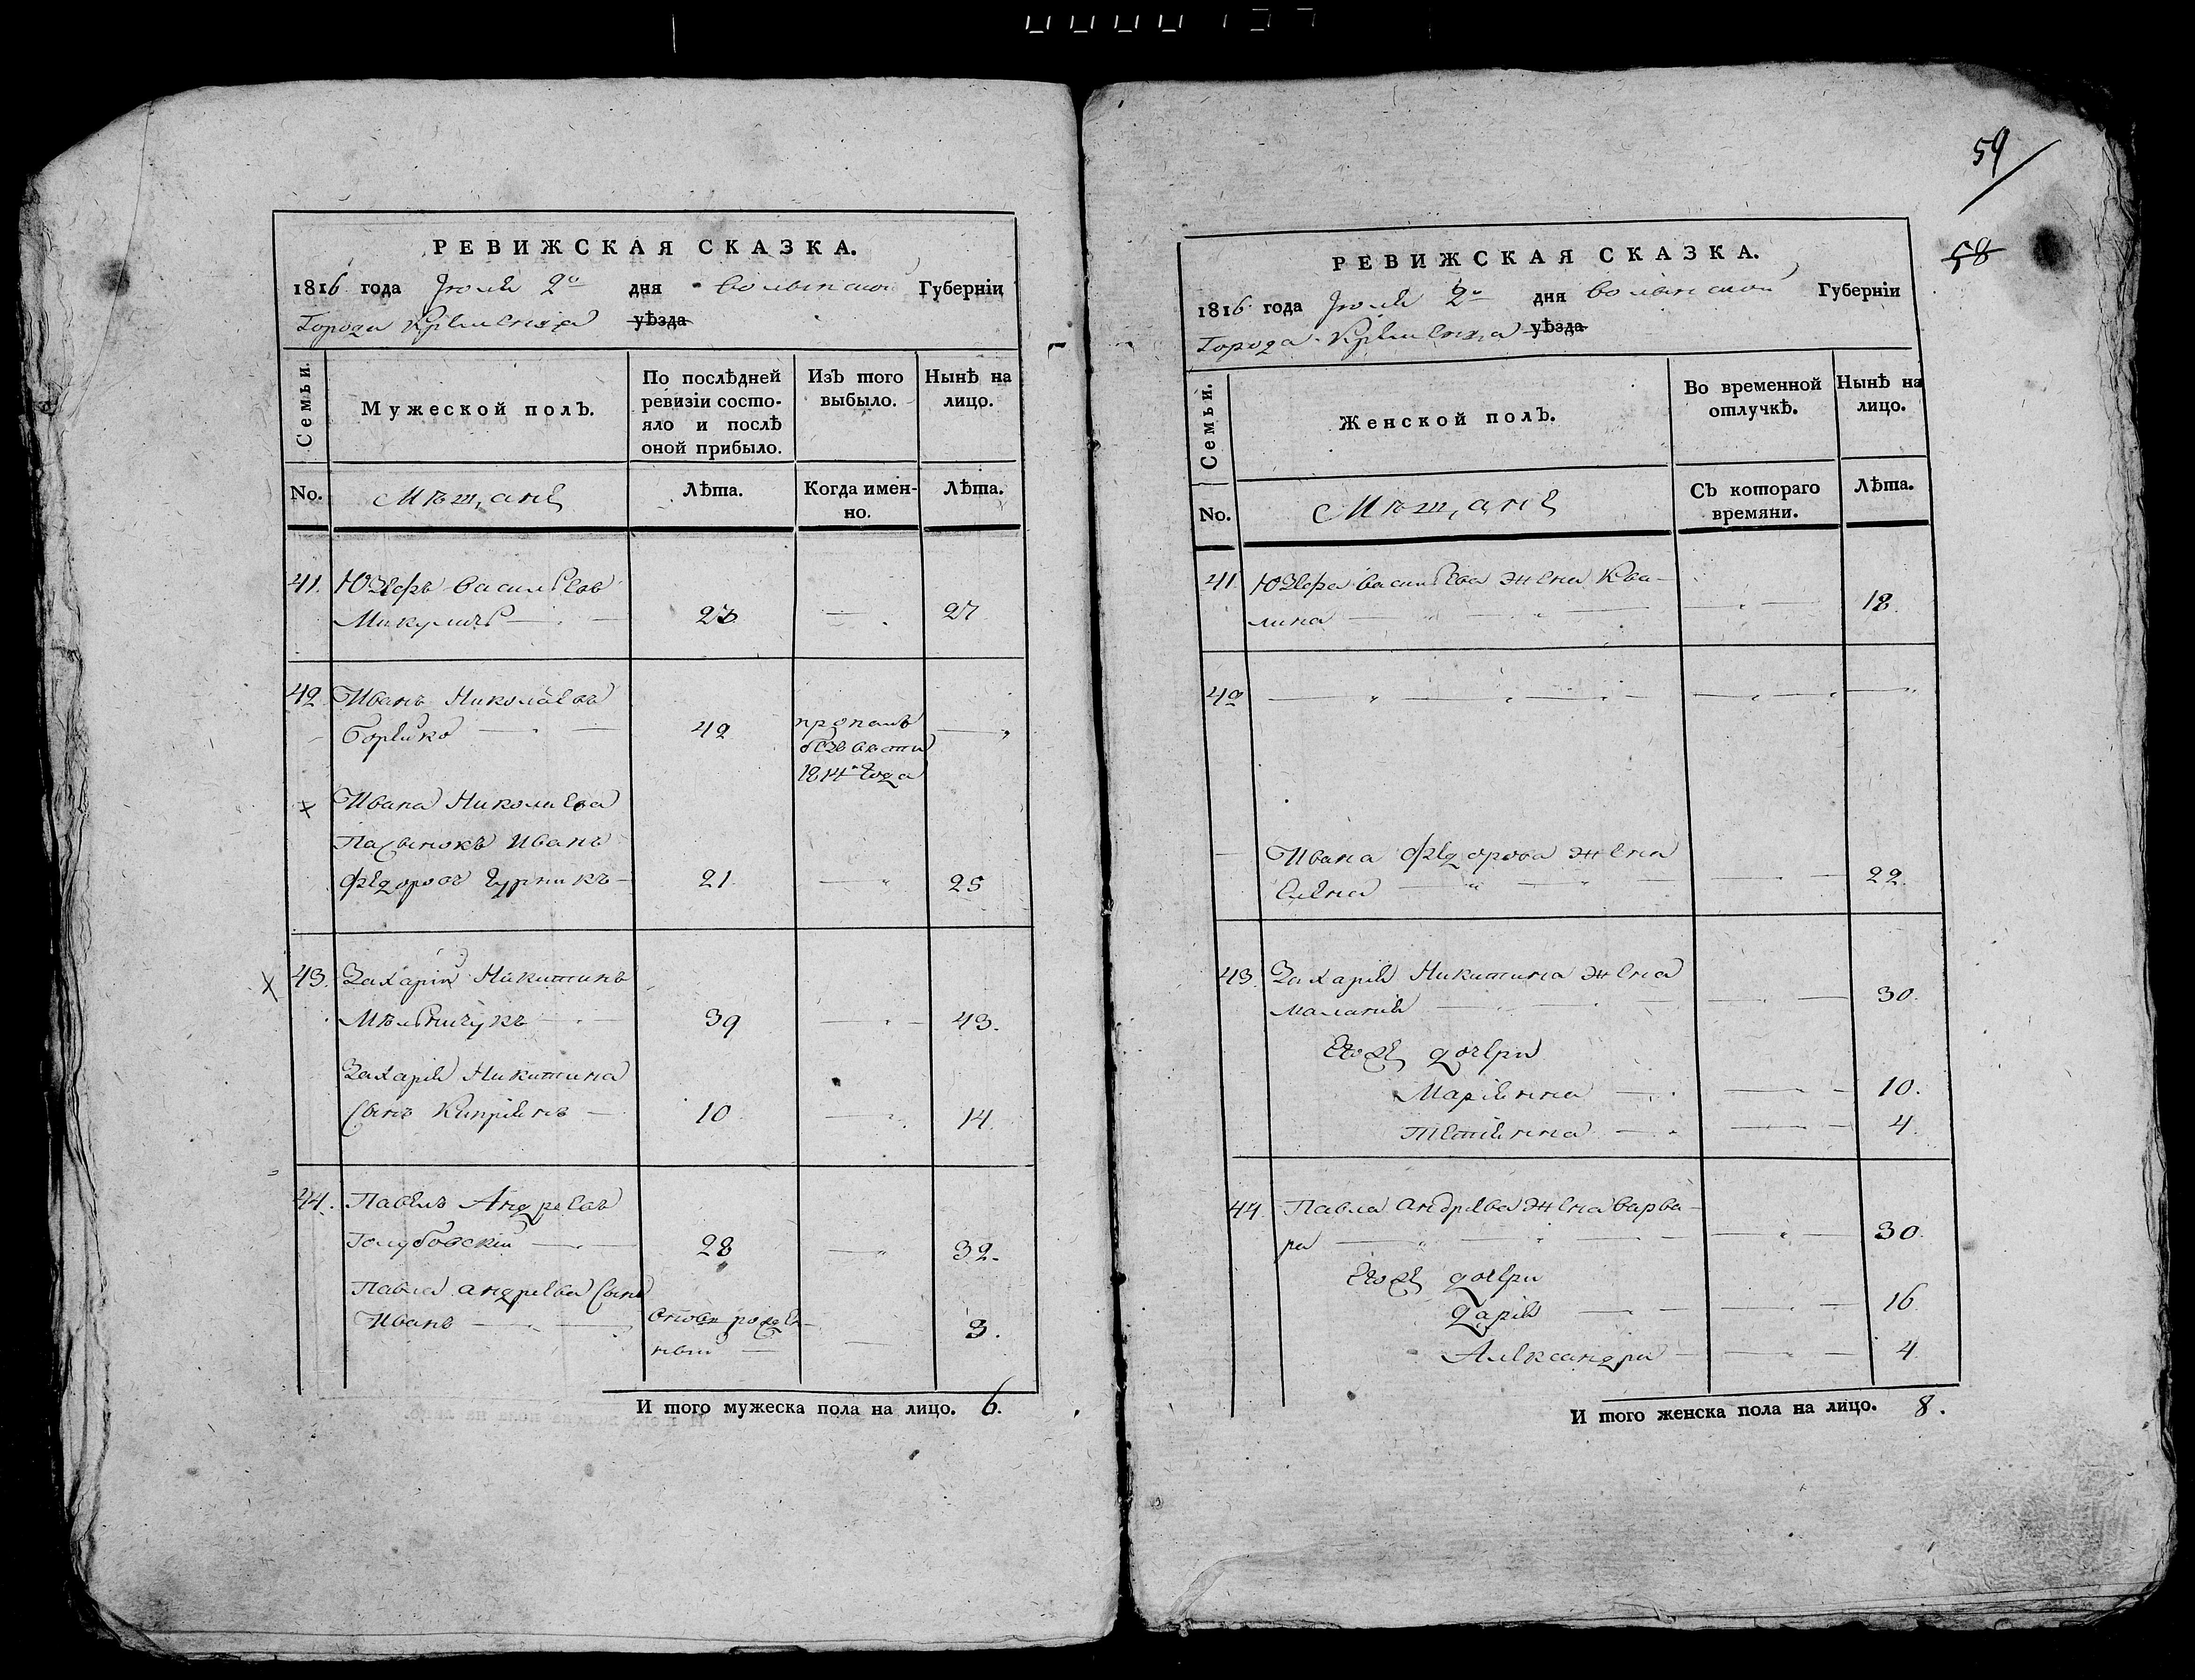 РЕВИЖСКАЯ СКАЗКА.
1816 года Июля 2го дня Волынской Губернїи
Города Кременца уѣзда
Семьи.
Мужеской полъ.
По послѣдней ревизїи состо-
яло и послѣ
оной прибыло.
Изъ того
выбыло.
Нынѣ на
лицо.
No.
Мѣщане
Лѣта.
Когда имен-
но.
Лѣта.
41. Юзефъ Васильевъ
Микуличъ 23 27
42 Иванъ Николаевъ
Борейко 42 пропалъ
безъ вѣсти
1814 года
Ивана Николаева
Пасынокъ Иванъ
Федоровъ Гурникъ 21. 25
43. Захарій Никитинъ
Мѣльничукъ 39 43.
Захарія Никитина
сынъ Кипріянъ 10 14.
44. Павелъ Андреевъ
Голубовскій 28 32.
Павла Андреева сынъ
Иванъ вновь рожден-
ный 3.
И того мужеска пола на лицо. 6.
59
58
РЕВИЖСКАЯ СКАЗКА.
1816 года Июля 2го дня Волынской Губернїи
Города Кременца уѣзда
Семьи.
Женской полъ.
Во временной
отлучкѣ.
Нынѣ на
лицо.
No.
Мѣщане
Съ котораго
времяни.
Лѣта.
41. Юзефа Васильева жена Ква-
лина 18.
42
Ивана Федорова жена
Елена 22.
43. Захарія Никитина жена
Маланія 30.
Егоже дочери
Маріянна 10.
Тетіянна 4.
44. Павла Андрева жена Варва-
ра 30.
Егоже дочери
Дарія 16.
Александра 4.
И того женска пола на лицо. 8.